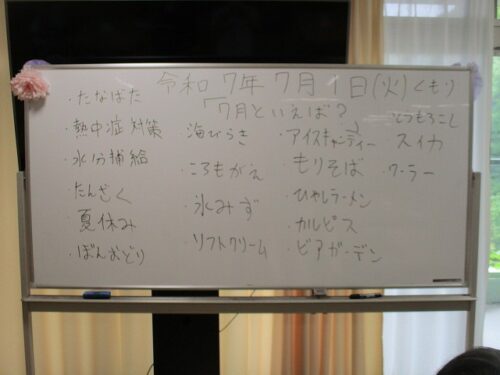 令和 7年 7月 1日(火) くもり
「7月といえば?」
・たなばた
・熱中症対策
・水分補給
・たんざく
・夏休み
・ぼんおどり
・海びらき
・ころもがえ
・氷みず
・ソフトクリーム
・アイスキャンディー
・もりそば
・ひやしラーメン
・カルピス
・ビアガーデン
とうもろこし
スイカ
・クーラー